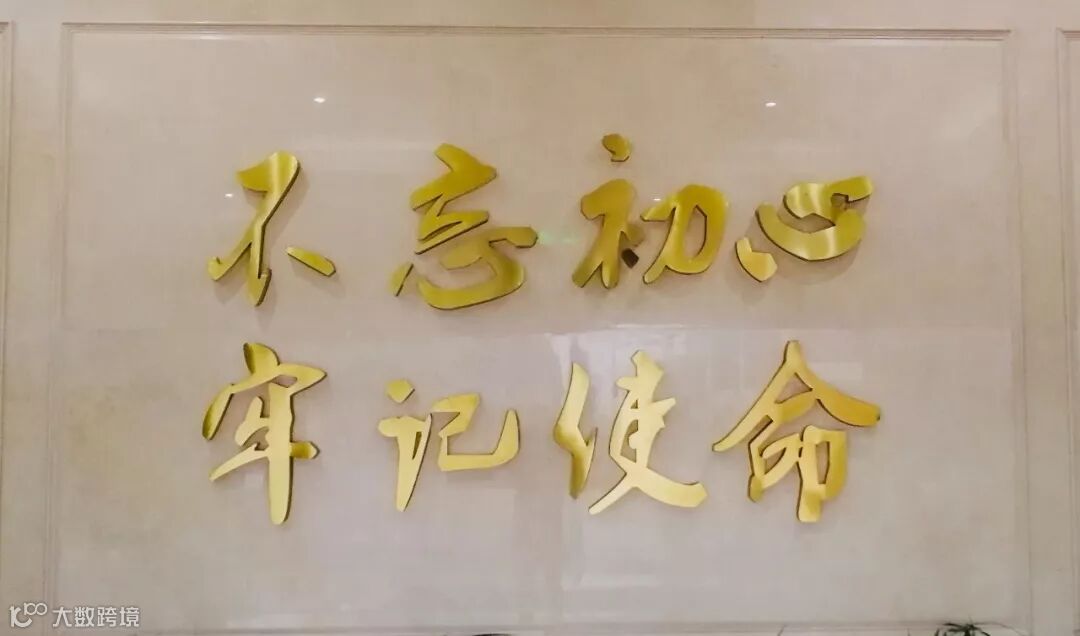 不忘初心
牢记使命
大数跨境